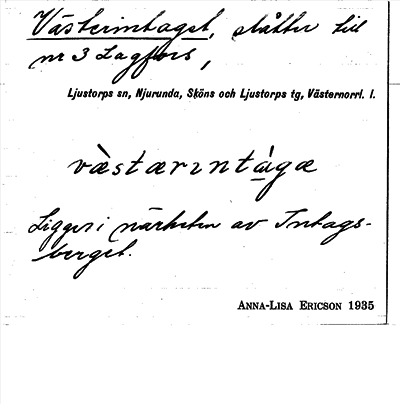 Västerintaget, slåtter till
nr 3 Lagfors,
Ljustorps sn, Njurunda, Sköns och Ljustorps tg, Västernorrl. l.
væ̀stærɪntágæ
Ligger i närheten av Intags-
berget.
ANNA-LISA ERICSON 1935